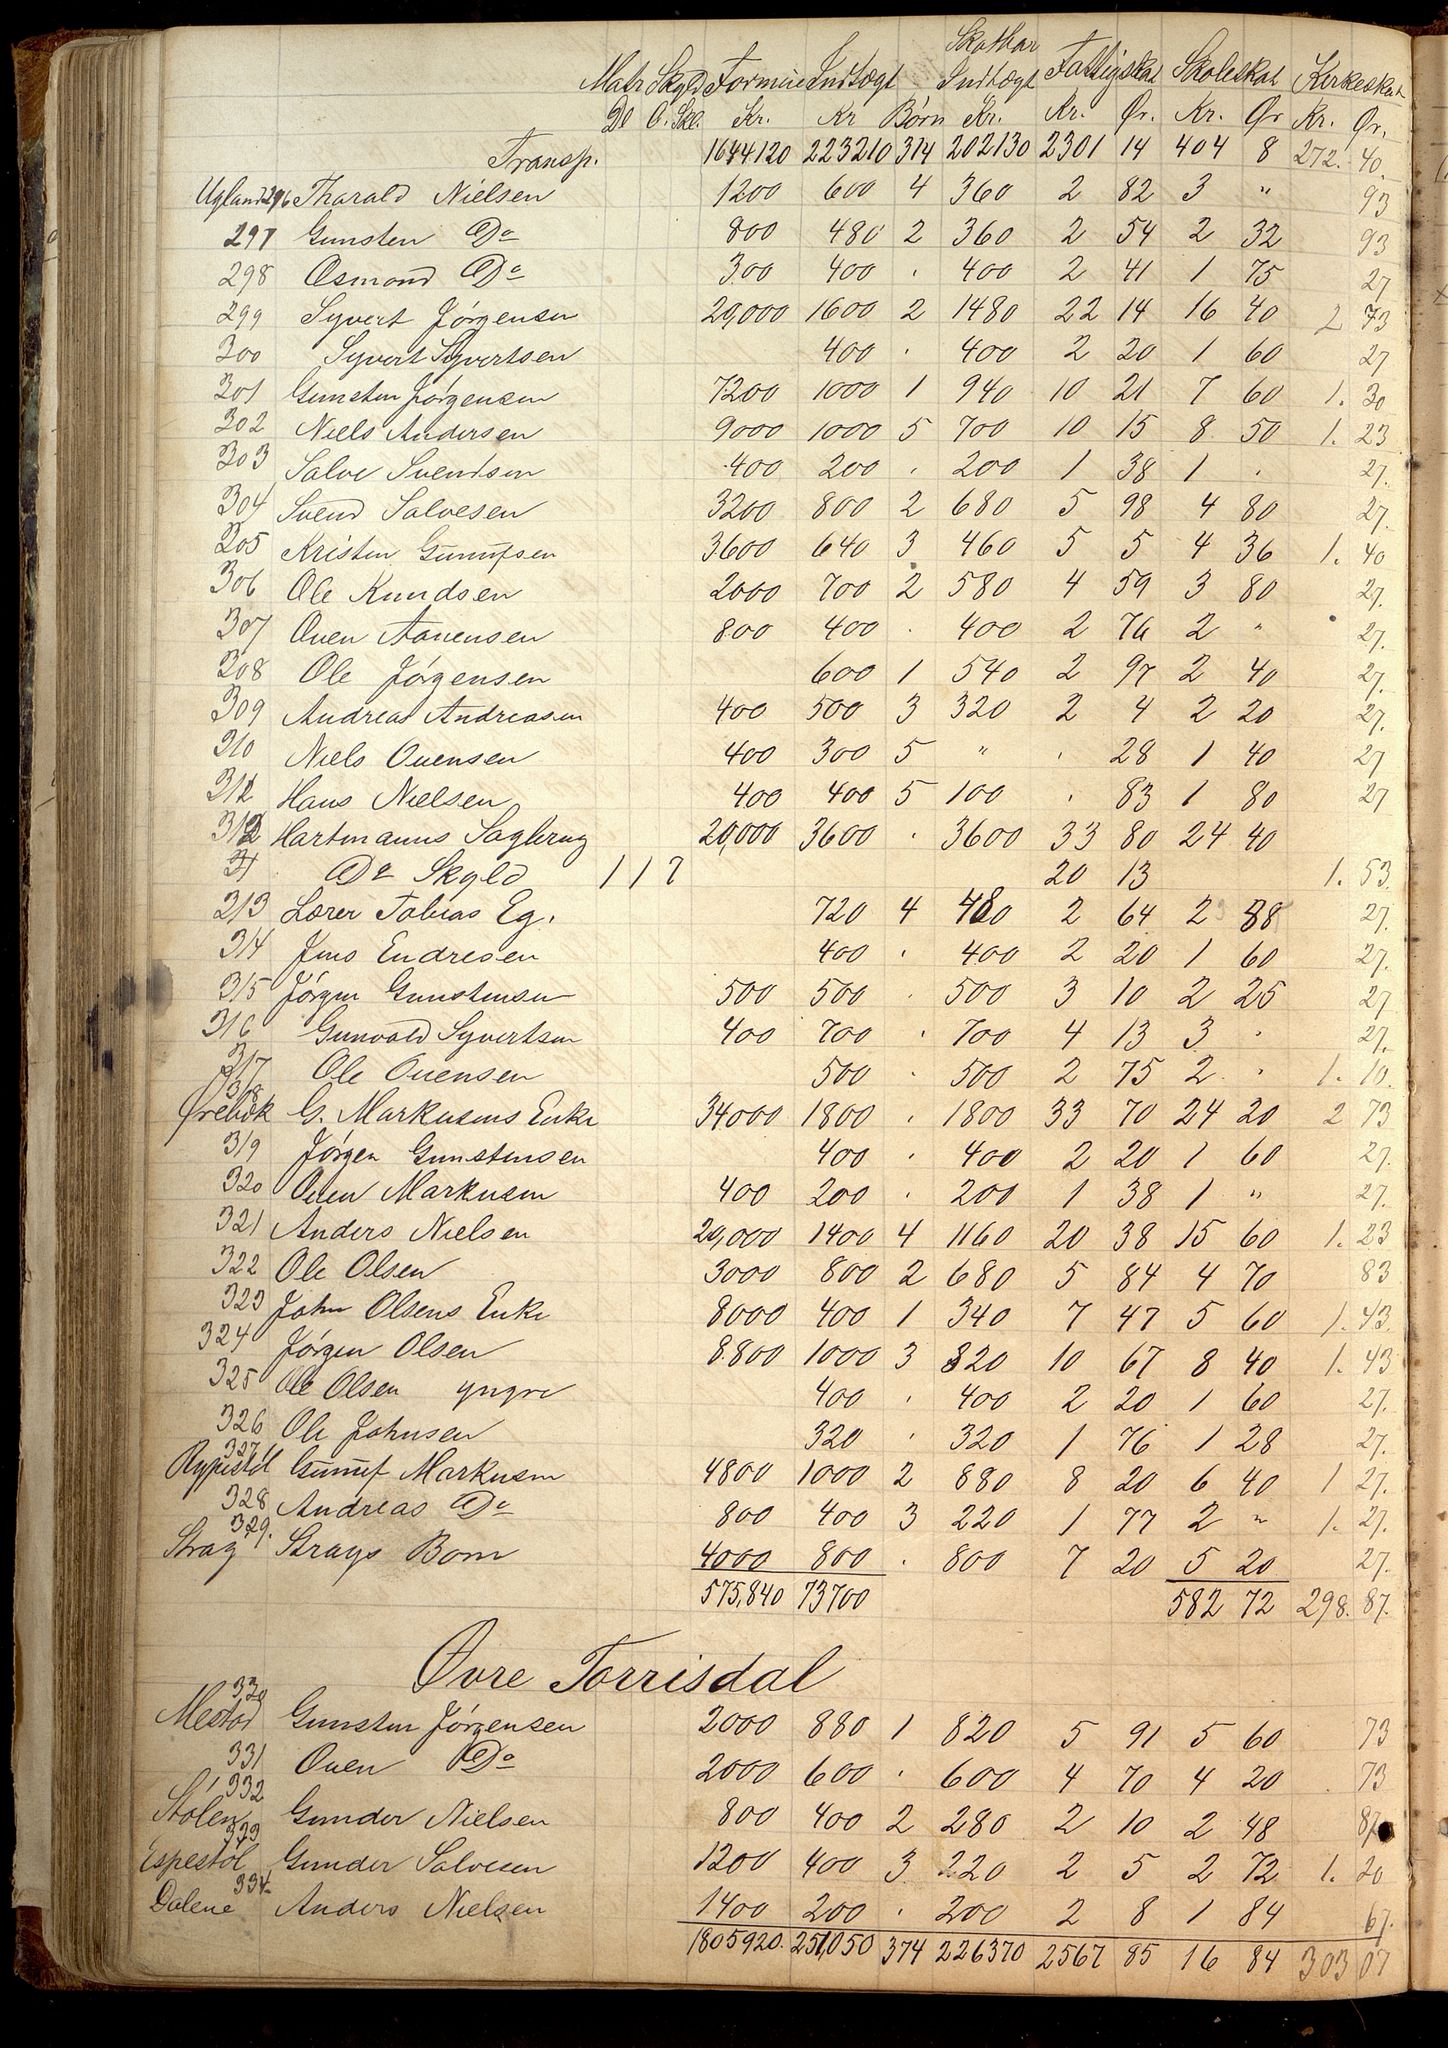 Skatbar
Matr Skyld Formue Indtægt Indtægt Fattigskat Skoleskat Kirkeskat
Dl O. Skl. Kr. Kr Børn Kr. Kr. Ør. Kr. Ør Kr. Ør.
Transp. 1644120 223210 314 202130 2301 14 404 8 272. 40.
Ugland 296 Tharald Nielsen 1200 600 4 360 2 82 3 " 93
297 Gunsten Do 800 480 2 360 2 54 2 32 93
298 Osmond Do 300 400 . 400 2 41 1 75 27
299 Syvert Jørgensen 20,000 1600 2 1480 22 14 16 40 2 73
300 Syvert Syvertsen 400 . 400 2 20 1 60 27
301 Gunsten Jørgensen 7200 1000 1 940 10 21 7 60 1. 30
302 Niels Andersen 9000 1000 5 700 10 15 8 50 1. 23
303 Salve Svendsen 400 200 . 200 1 38 1 . 27.
304 Svend Salvesen 3200 800 2 680 5 98 4 80 27.
305 Kristen Gunufsen 3600 640 3 460 5 5 4 36 1. 40
306 Ole Knudsen 2000 700 2 580 4 59 3 80 27.
307 Ouen Aanensen 800 400 . 400 2 76 2 " 27.
308 Ole Jørgensen 600 1 540 2 97 2 40 27.
309 Andreas Andreasen 400 500 3 320 2 4 2 20 27.
310 Niels Ouensen 400 300 5 " . 28 1 40 27
311 Hans Nielsen 400 400 5 100 . 83 1 80 27
312 Hartmanns Sagbrug 20,000 3600 . 3600 33 80 24 40
Do Skyld 1 1 7 20 13 1. 53.
313 Lærer Tobias Eg. 720 4 480 2 64 2 88 27.
314 Jens Endresen 400 . 400 2 20 1 60 27.
315 Jørgen Gunstensen 500 500 . 500 3 10 2 25 27
316 Gunvald Syvertsen 400 700 . 700 4 13 3 . 27.
317 Ole Ouensen 500 . 500 2 75 2 . 1. 10.
318
Ørebæk G. Markusens Enke 34000 1800 . 1800 33 70 24 20 2 73
319 Jørgen Gunstensen 400 . 400 2 20 1 60 27.
320 Ouen Markusen 400 200 . 200 1 38 1 " 27.
321 Anders Nielsen 20,000 1400 4 1160 20 38 15 60 1. 23
322 Ole Olsen 3000 800 2 680 5 84 4 70 83
323 John Olsens Enke 8000 400 1 340 7 47 5 60 1. 43.
324 Jørgen Olsen 8.800 1000 3 820 10 67 8 40 1. 43
325 Ole Olsen yngre 400 . 400 2 20 1 60 27.
326 Ole Johnsen 320 . 320 1 76 1 28 27.
327
Rypestøl Gunuf Markusen 4800 1000 2 880 8 20 6 40 1 27.
328 Andreas Do 800 400 3 220 1 77 2 " 1. 27.
329.
Stray Strays Bom 4000 800 . 800 7 20 5 20 27.
575,840 73700 582 72 298. 87.
Øvre Torrisdal
330
Mestad Gunsten Jørgensen 2000 880 1 820 5 91 5 60 73
331 Ouen Do 2000 600 . 600 4 70 4 20 . 73
332
Stølen Gunder Nielsen 800 400 2 280 2 10 2 48 87
333
Espestøl Gunder Salvesen 1200 400 3 220 2 5 2 72 1. 20
334
Dalene Anders Nielsen 1400 200 . 200 2 8 1 84 67.
1805920. 251,050 374 226370 2567 85 16 84 303 07